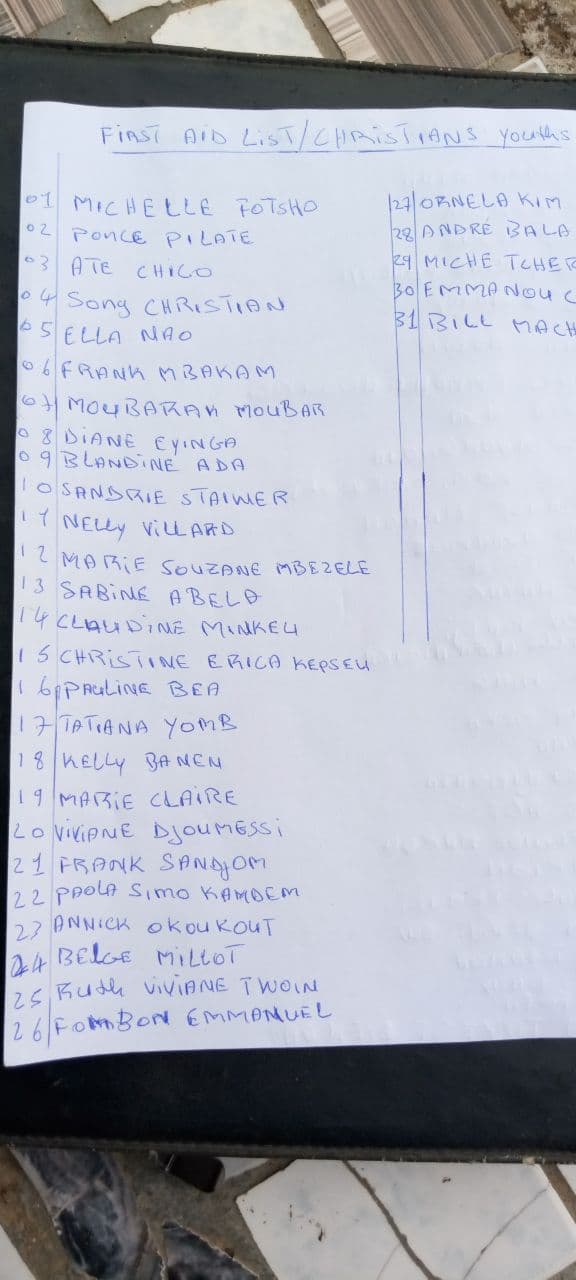 FIRST AID LIST/CHRISTIANS youths
01 MICHELLE FOTSHO
02 PONCE PILATE
03 ATE CHICO
04 Song CHRISTIAN
05 ELLA NAO
06 FRANK MBAKAM
07 MOUBARAK MOUBAR
08 DIANE EYINGA
09 BLANDINE ADA
10 SANDRIE STAIWER
11 NELLY VILLARD
12 MARIE SOUZANE MBEZELE
13 SABINE ABELA
14 CLAUDINE MINKEU
15 CHRISTINE ERICA KEPSEU
16 PAULINE BEA
17 TATIANA YOMB
18 KELLY BANEN
19 MARIE CLAIRE
20 VIVIANE DJOUMESSI
21 FRANK SANDJOM
22 PAOLA SIMO KAMDEM
23 ANNICK OKOUKOUT
24 BELGE MILLOT
25 Ruth VIVIANE TWOIN
26 FOMBON EMMANUEL
27 ORNELA KIM
28 ANDRÉ BALA
29 MICHE TCHER
30 EMMANOU
31 BILL MACH